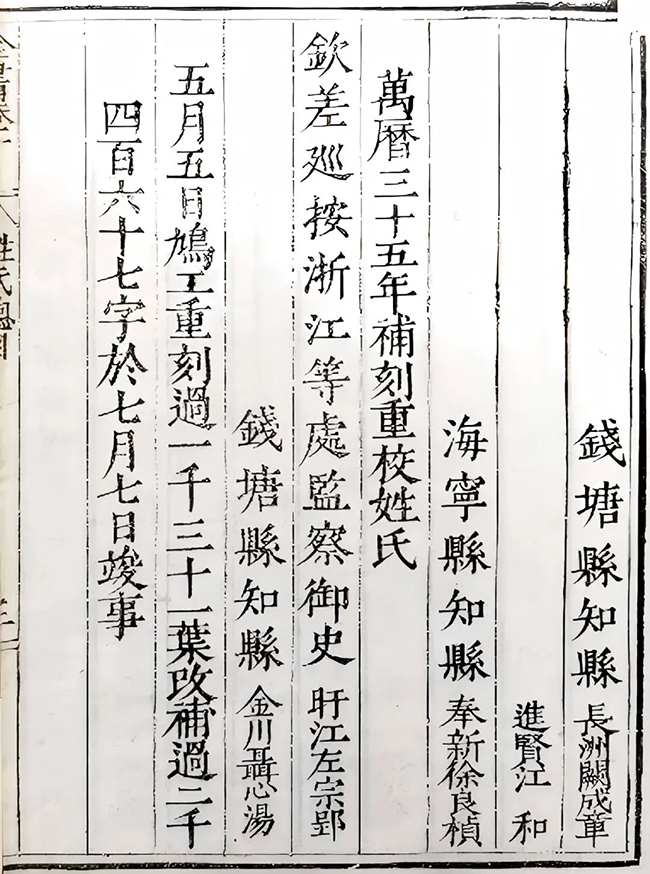 錢塘縣知縣 長洲闕成章
進賢江 和
海寧縣知縣 奉新徐良楨
萬暦三十五年補刻重校姓氏
欽差廵按浙江等處監察御史 盱江左宗郢
錢塘縣知縣 金川聶心湯
五月五日鳩工重刻過一千三十一葉改補過二千
四百六十七字於七月七日竣事